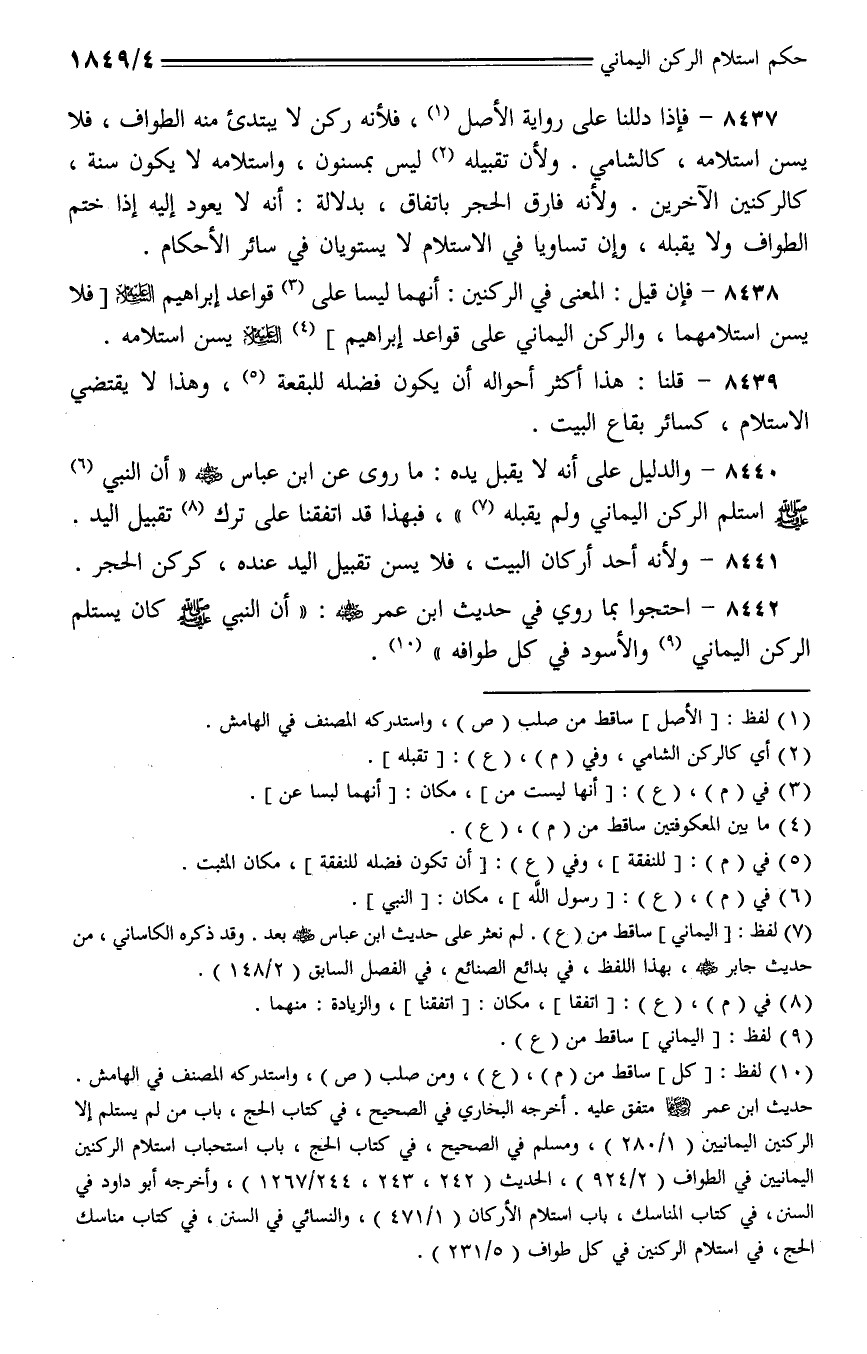 حكم استلام الركن اليماني ١٨٤٩/٤
٨٤٣٧ – فإذا دللنا على رواية الأصل (١) ، فلأنه ركن لا يبتدئ منه الطواف ، فلا
يسن استلامه ، كالشامي . ولأن تقبيله (٢) ليس بمسنون ، واستلامه لا يكون سنة ،
كالركنين الآخرين . ولأنه فارق الحجر باتفاق ، بدلالة : أنه لا يعود إليه إذا ختم
الطواف ولا يقبله ، وإن تساويا في الاستلام لا يستويان في سائر الأحكام .
٨٤٣٨ – فإن قيل : المعنى في الركنين : أنهما ليسا على (٣) قواعد إبراهيم عليه السلام [ فلا
يسن استلامهما ، والركن اليماني على قواعد إبراهيم ] (٤) عليه السلام يسن استلامه .
٨٤٣٩ – قلنا : هذا أكثر أحواله أن يكون فضله للبقعة (٥) ، وهذا لا يقتضي
الاستلام ، كسائر بقاع البيت .
٨٤٤٠ – والدليل على أنه لا يقبل يده : ما روى عن ابن عباس رضي الله عنه « أن النبي (٦)
ﷺ استلم الركن اليماني ولم يقبله (٧) » ، فبهذا قد اتفقنا على ترك (٨) تقبيل اليد .
٨٤٤١ – ولأنه أحد أركان البيت ، فلا يسن تقبيل اليد عنده ، كركن الحجر .
٨٤٤٢ – احتجوا بما روي في حديث ابن عمر رضي الله عنه : « أن النبي ﷺ كان يستلم
الركن اليماني (٩) والأسود في كل طوافه » (١٠) .
(١) لفظ : [ الأصل ] ساقط من صلب ( ص ) ، واستدركه المصنف في الهامش .
(٢) أي كالركن الشامي ، وفي ( م ) ، ( ع ) : [ تقبله ] .
(٣) في ( م ) ، ( ع ) : [ أنها ليست من ] ، مكان : [ أنهما لبسا عن ] .
(٤) ما بين المعكوفتين ساقط من ( م ) ، ( ع ) .
(٥) في ( م ) : [ للنفقة ] ، وفي ( ع ) : [ أن تكون فضله للنفقة ] ، مكان المثبت .
(٦) في ( م ) ، ( ع ) : [ رسول الله ] ، مكان : [ النبي ] .
(٧) لفظ : [ اليماني ] ساقط من ( ع ) . لم نعثر على حديث ابن عباس رضي الله عنه بعد . وقد ذكره الكاساني ، من
حديث جابر رضي الله عنه ، بهذا اللفظ ، في بدائع الصنائع ، في الفصل السابق ( ١٤٨/٢ ) .
(٨) في ( م ) ، ( ع ) : [ اتفقا ] ، مكان : [ اتفقنا ] ، والزيادة : منهما .
(٩) لفظ : [ اليماني ] ساقط من ( ع ) .
(١٠) لفظ : [ كل ] ساقط من ( م ) ، ( ع ) ، ومن صلب ( ص ) ، واستدركه المصنف في الهامش .
حديث ابن عمر رضي الله عنهما متفق عليه . أخرجه البخاري في الصحيح ، في كتاب الحج ، باب من لم يستلم إلا
الركنين اليمانيين ( ٢٨٠/١ ) ، ومسلم في الصحيح ، في كتاب الحج ، باب استحباب استلام الركنين
اليمانيين في الطواف ( ٩٢٤/٢ ) ، الحديث ( ٢٤٢ ، ٢٤٣ ، ١٢٦٧/٢٤٤ ) ، وأخرجه أبو داود في
السنن، في كتاب المناسك ، باب استلام الأركان ( ٤٧١/١ ) ، والنسائي في السنن ، في كتاب مناسك
الحج، في استلام الركنين في كل طواف ( ٢٣١/٥ ) .